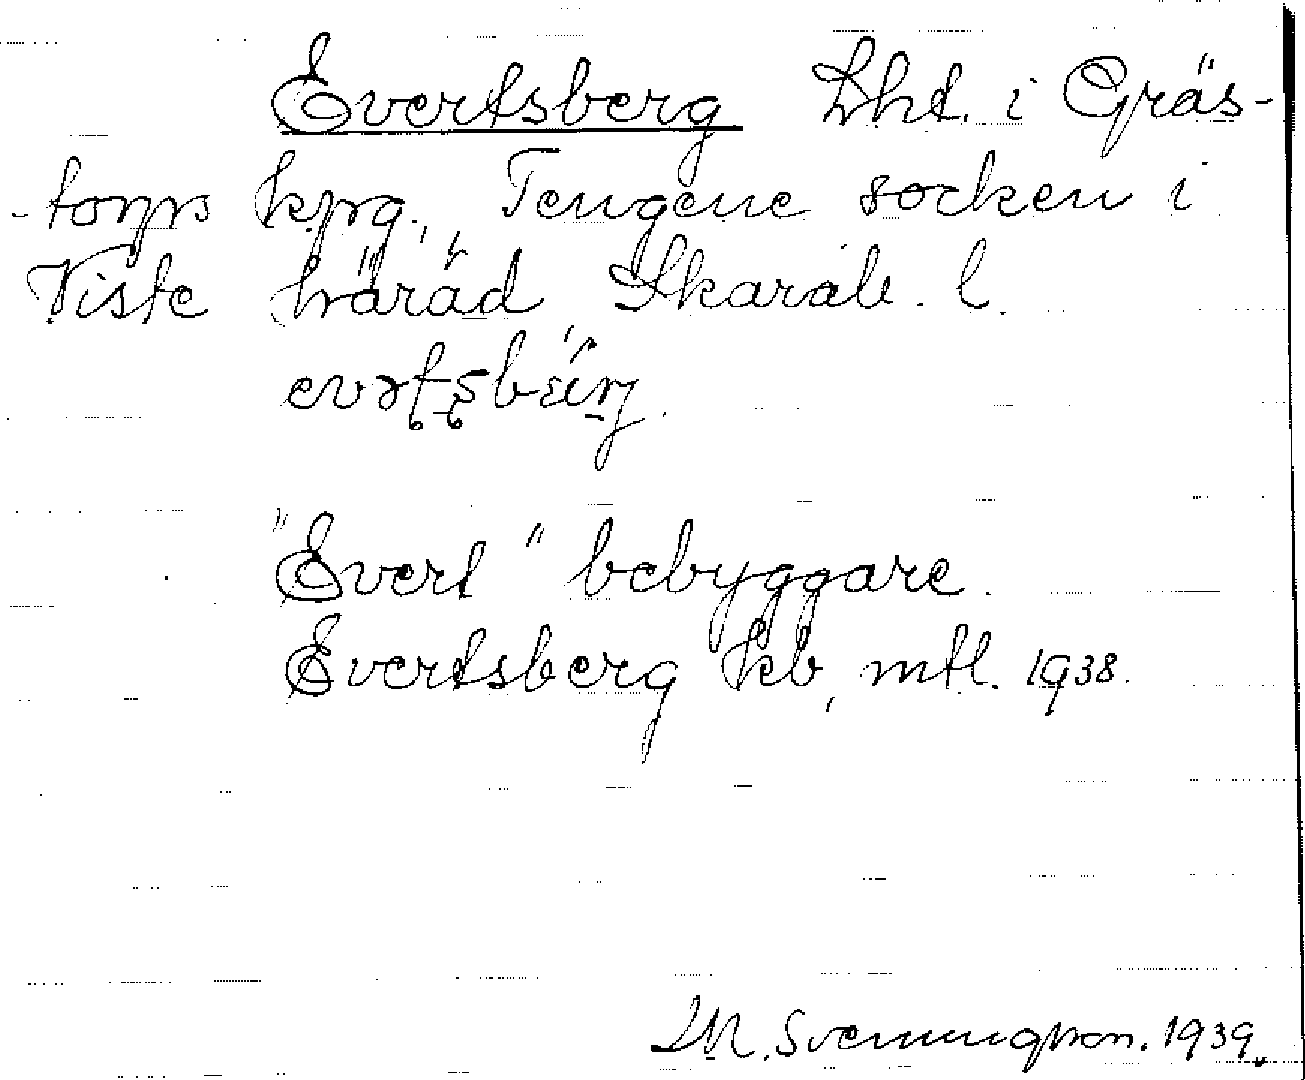 Evertsberg Lht. i Gräs-
-torps kpg., Tengene socken i
Viste härad Skarab. l.
"Evert" bebyggare.
Evertsberg kb, mtl. 1938.
M. Svenungson. 1939.